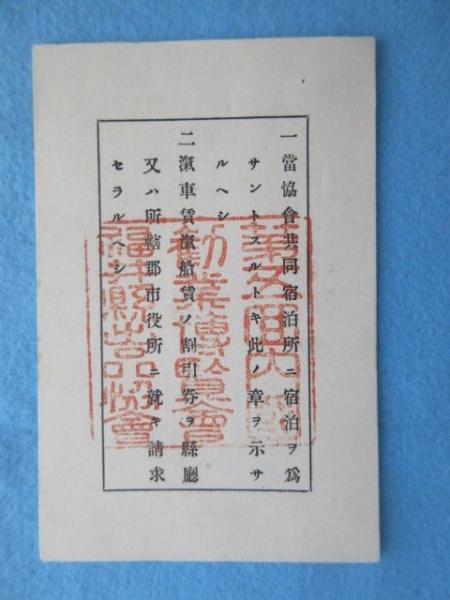 一當協會共同宿泊所ニ宿泊ヲ爲
サントスルトキ此ノ章ヲ示サ
ルヘシ
二滊車賃滊船賃ノ割引券ヲ縣廳
又ハ所轄郡市役所ニ就キ請求
セラルヘシ
第五回内國
勸業博覽會
福井縣出品協會